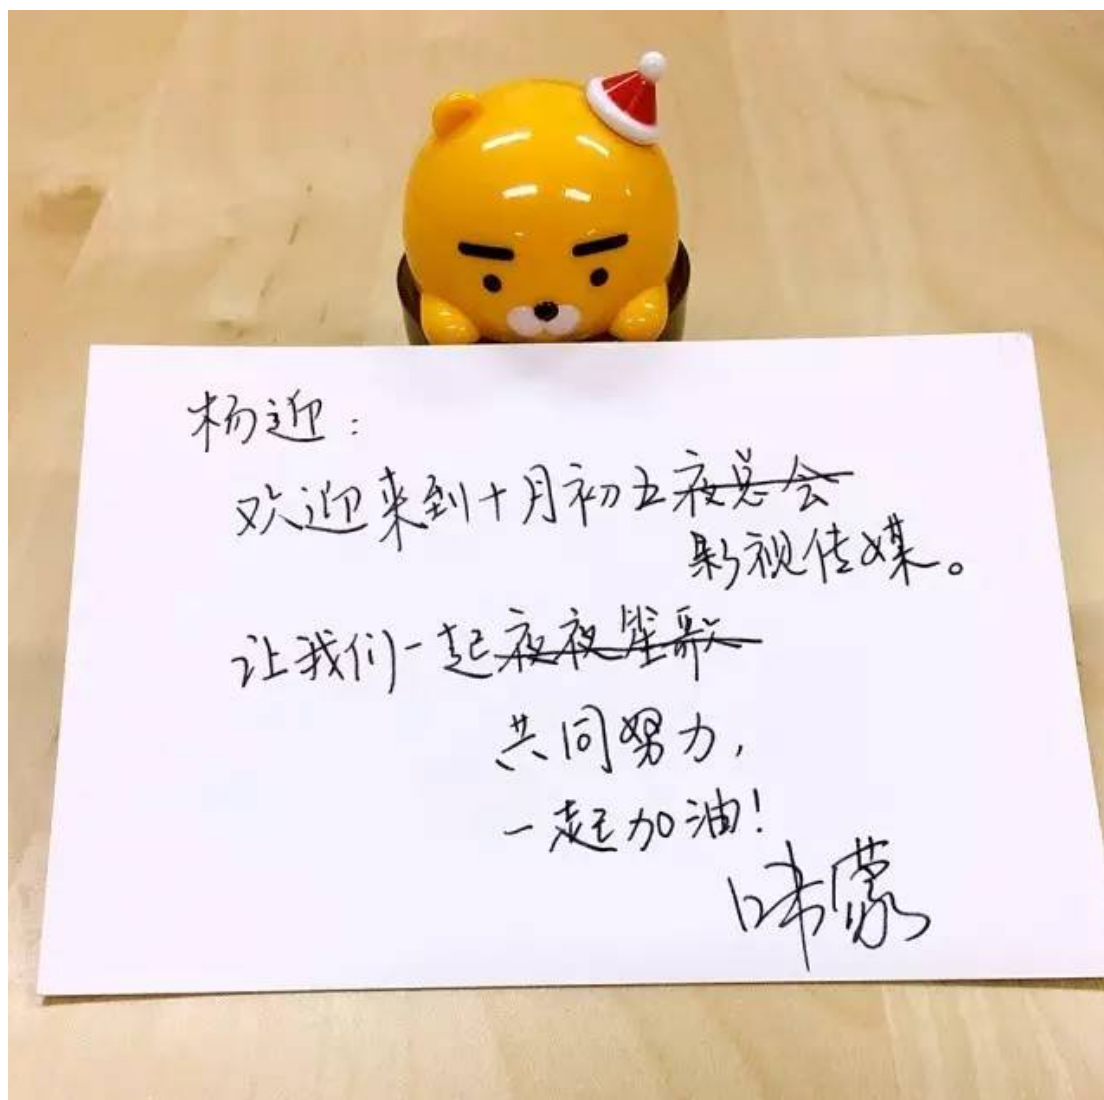 杨迎:
欢迎来到十月初五夜总会
影视传媒。
让我们一起夜夜笙歌
共同努力,
一起加油!
咪蒙